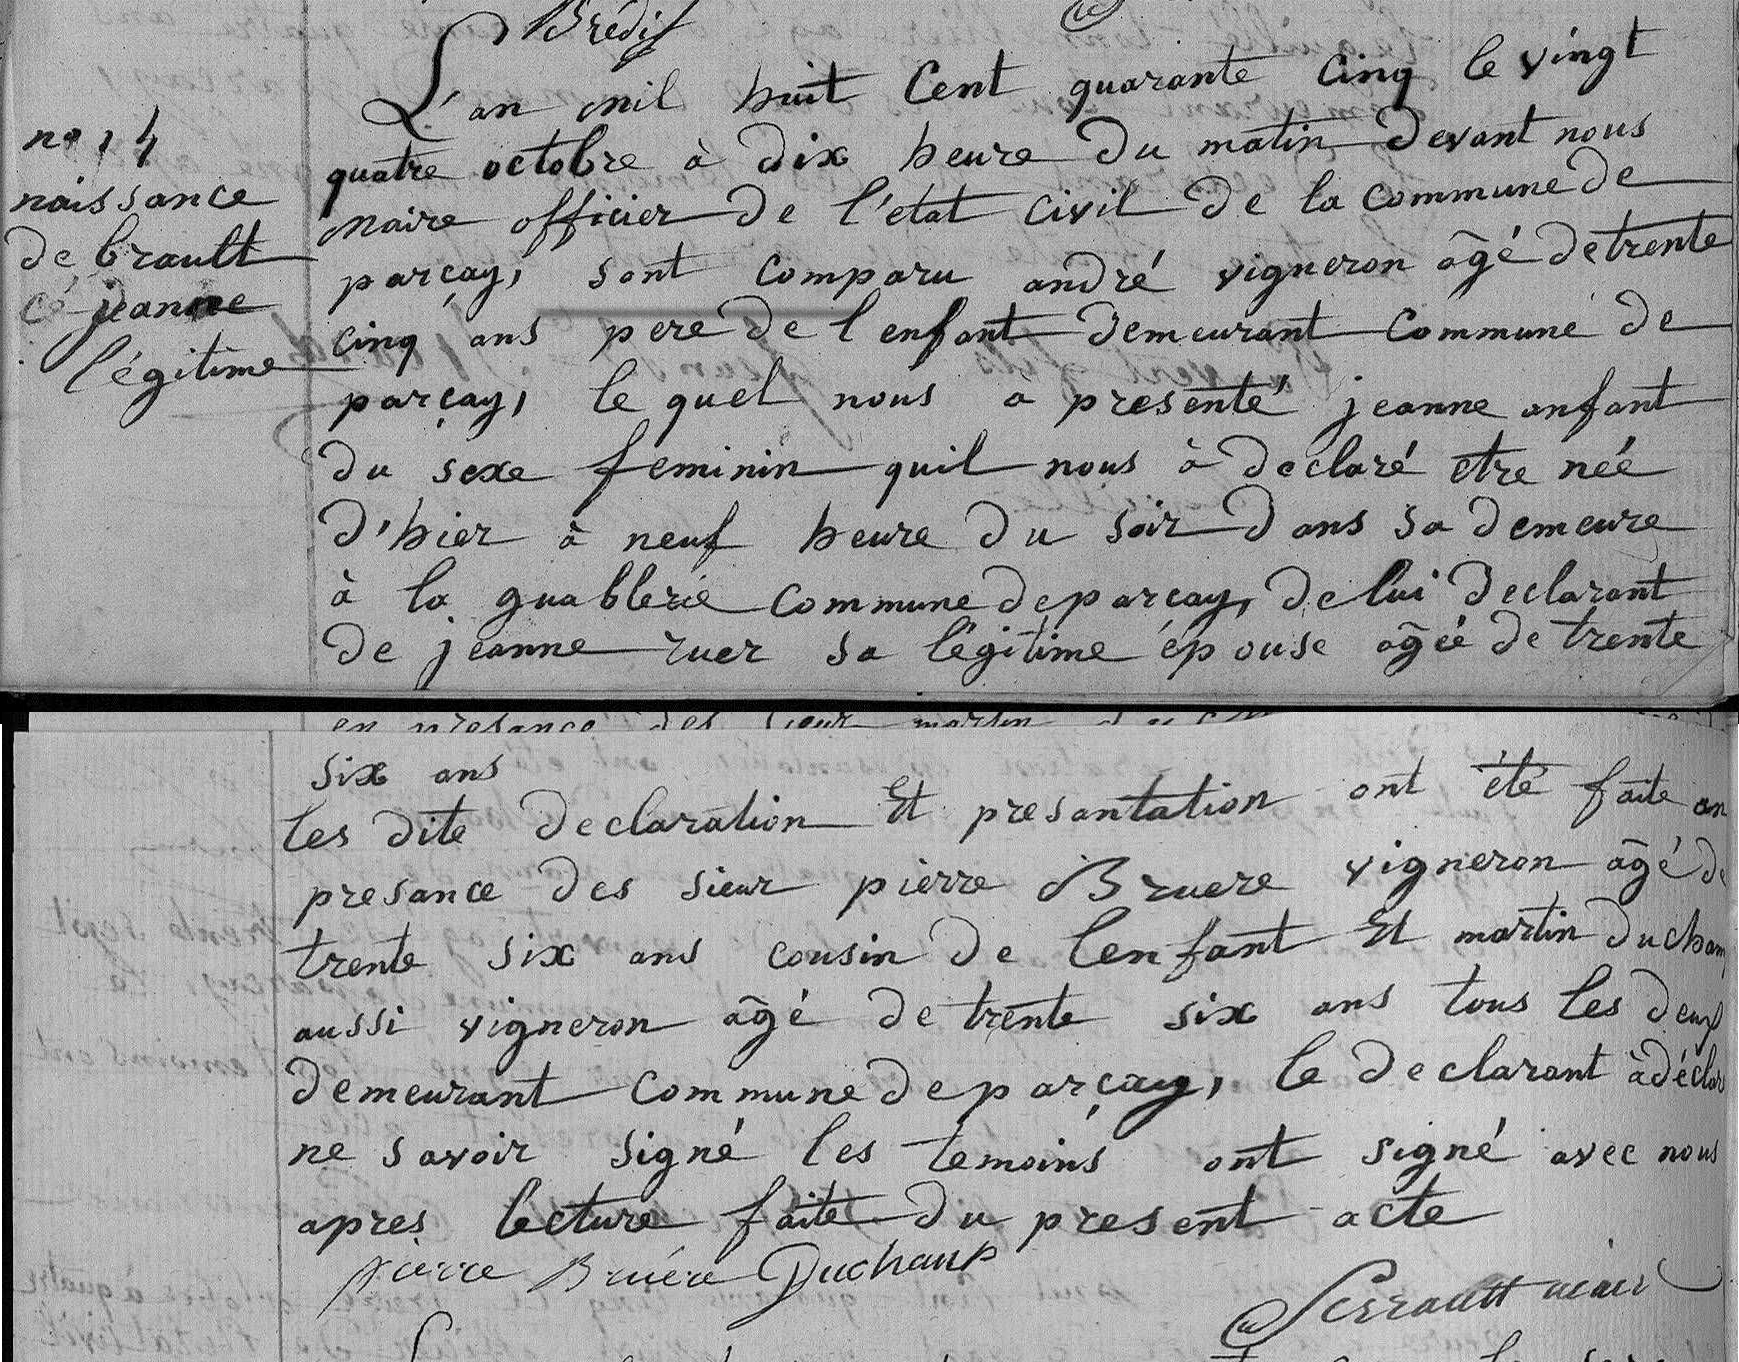 Brédif
L'an mil huit Cent quarante Cinq le vingt
quatre octobre à dix heure du matin devant nous
maire officier de l'état civil de la commune de
parçay, sont comparu andré vigneron âgé de trente
cinq ans pere de l enfant demeurant commune de
parçay, le quel nous a presenté jeanne anfant
du sexe feminin quil nous à declaré etre née
d'hier à neuf heure du soir dans sa demeure
à la guablerie commune de parçay, de lui declarant
de jeanne ruer sa légitime épouse agée de trente
no 14
naissance
de brault
jeanne
légitime
six ans
les dite declaration Et presantation ont été faite an
presance des sieur pierre Bruere vigneron âgé de
trente six ans cousin de lenfant Et martin ducham
aussi vigneron âgé de trente six ans tous les deux
demeurant commune de parçay, le declarant à déclar
ne savoir signé les temoins ont signé avec nous
apres lecture faite du present acte
pierre Bruére Duchamp
Serrault maire